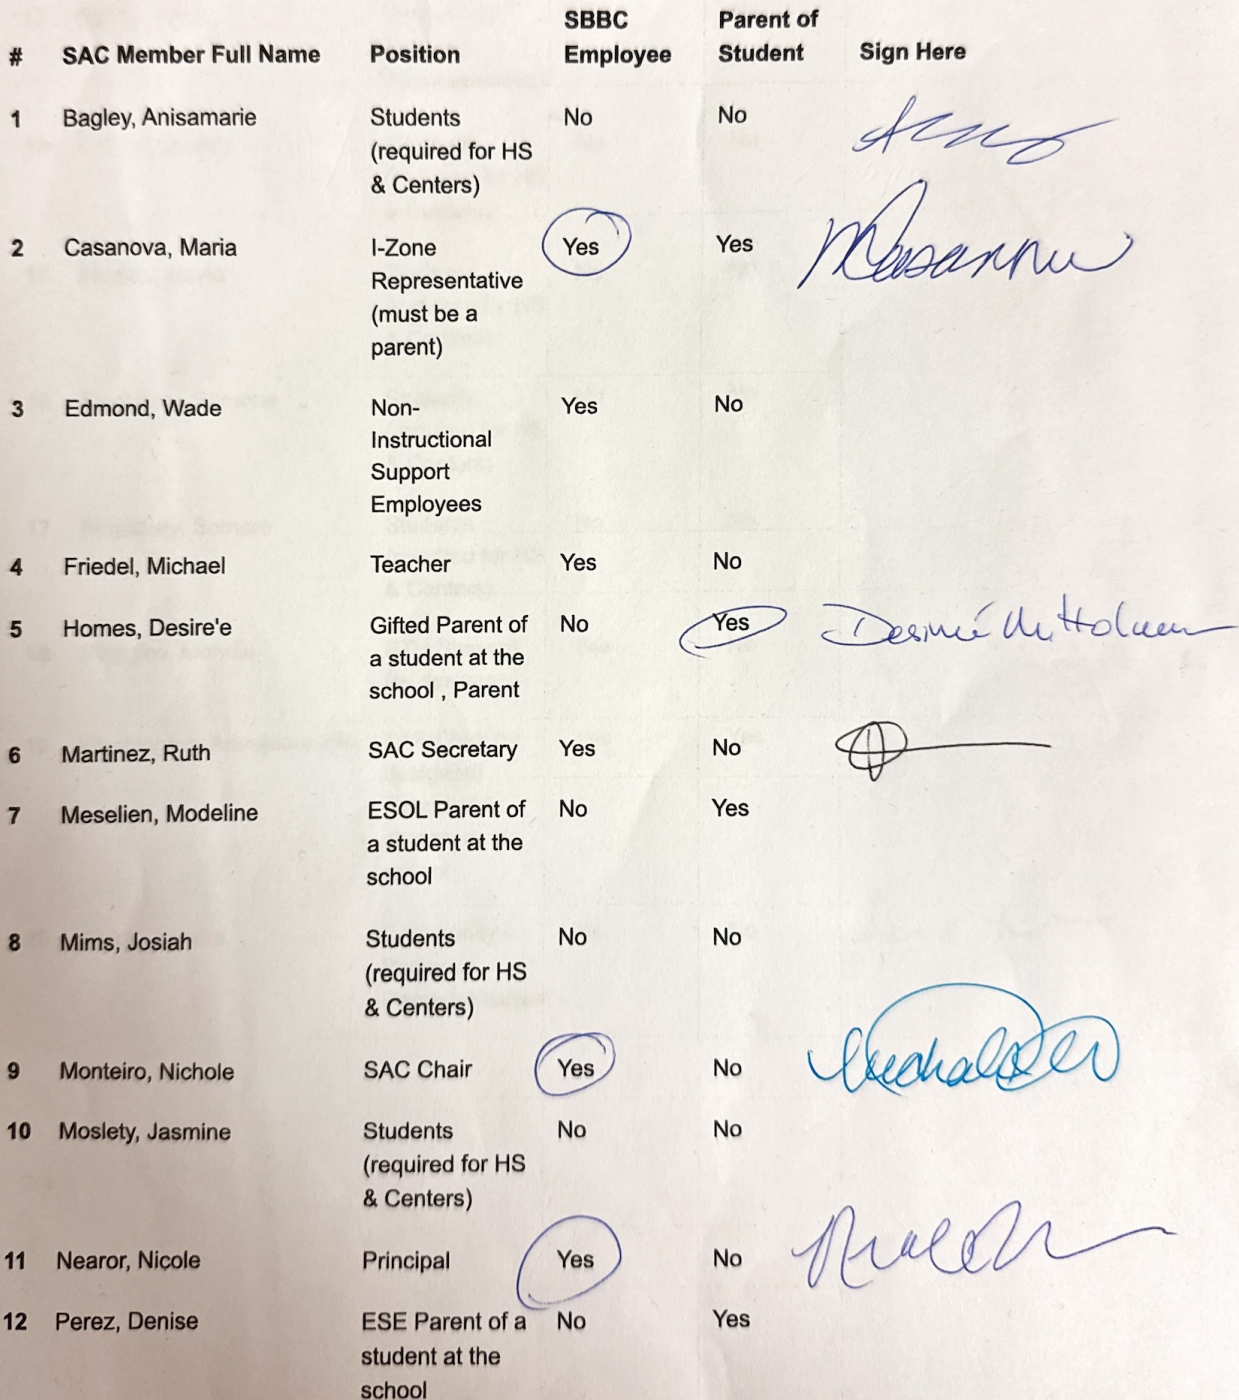 # SAC Member Full Name Position SBBC Employee Parent of Student Sign Here
1 Bagley, Anisamarie Students No No
(required for HS
& Centers)
2 Casanova, Maria I-Zone Yes Yes
Representative
(must be a
parent)
3 Edmond, Wade Non- Yes No
Instructional
Support
Employees
4 Friedel, Michael Teacher Yes No
5 Homes, Desire'e Gifted Parent of No Yes
a student at the
school , Parent
6 Martinez, Ruth SAC Secretary Yes No
7 Meselien, Modeline ESOL Parent of No Yes
a student at the
school
8 Mims, Josiah Students No No
(required for HS
& Centers)
9 Monteiro, Nichole SAC Chair Yes No
10 Moslety, Jasmine Students No No
(required for HS
& Centers)
11 Nearor, Nicole Principal Yes No
12 Perez, Denise ESE Parent of a No Yes
student at the
school